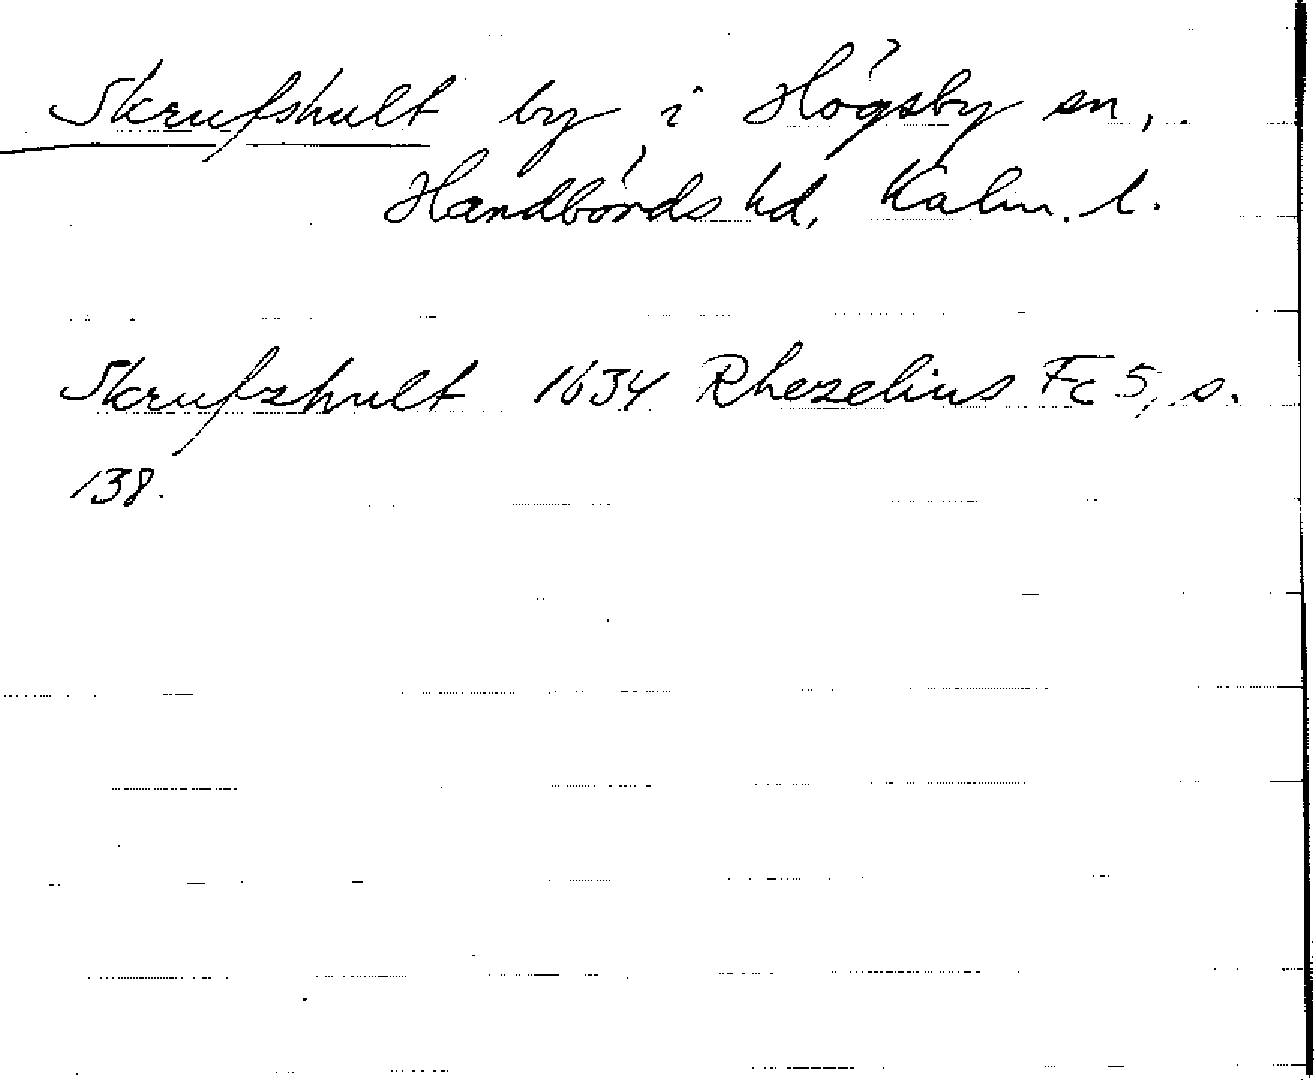 Skrufshult by i Högsby sn,
Handbörds hd, Kalm. l.
Skrufzhult 1634 Rhezelius Fc 5, s.
138.